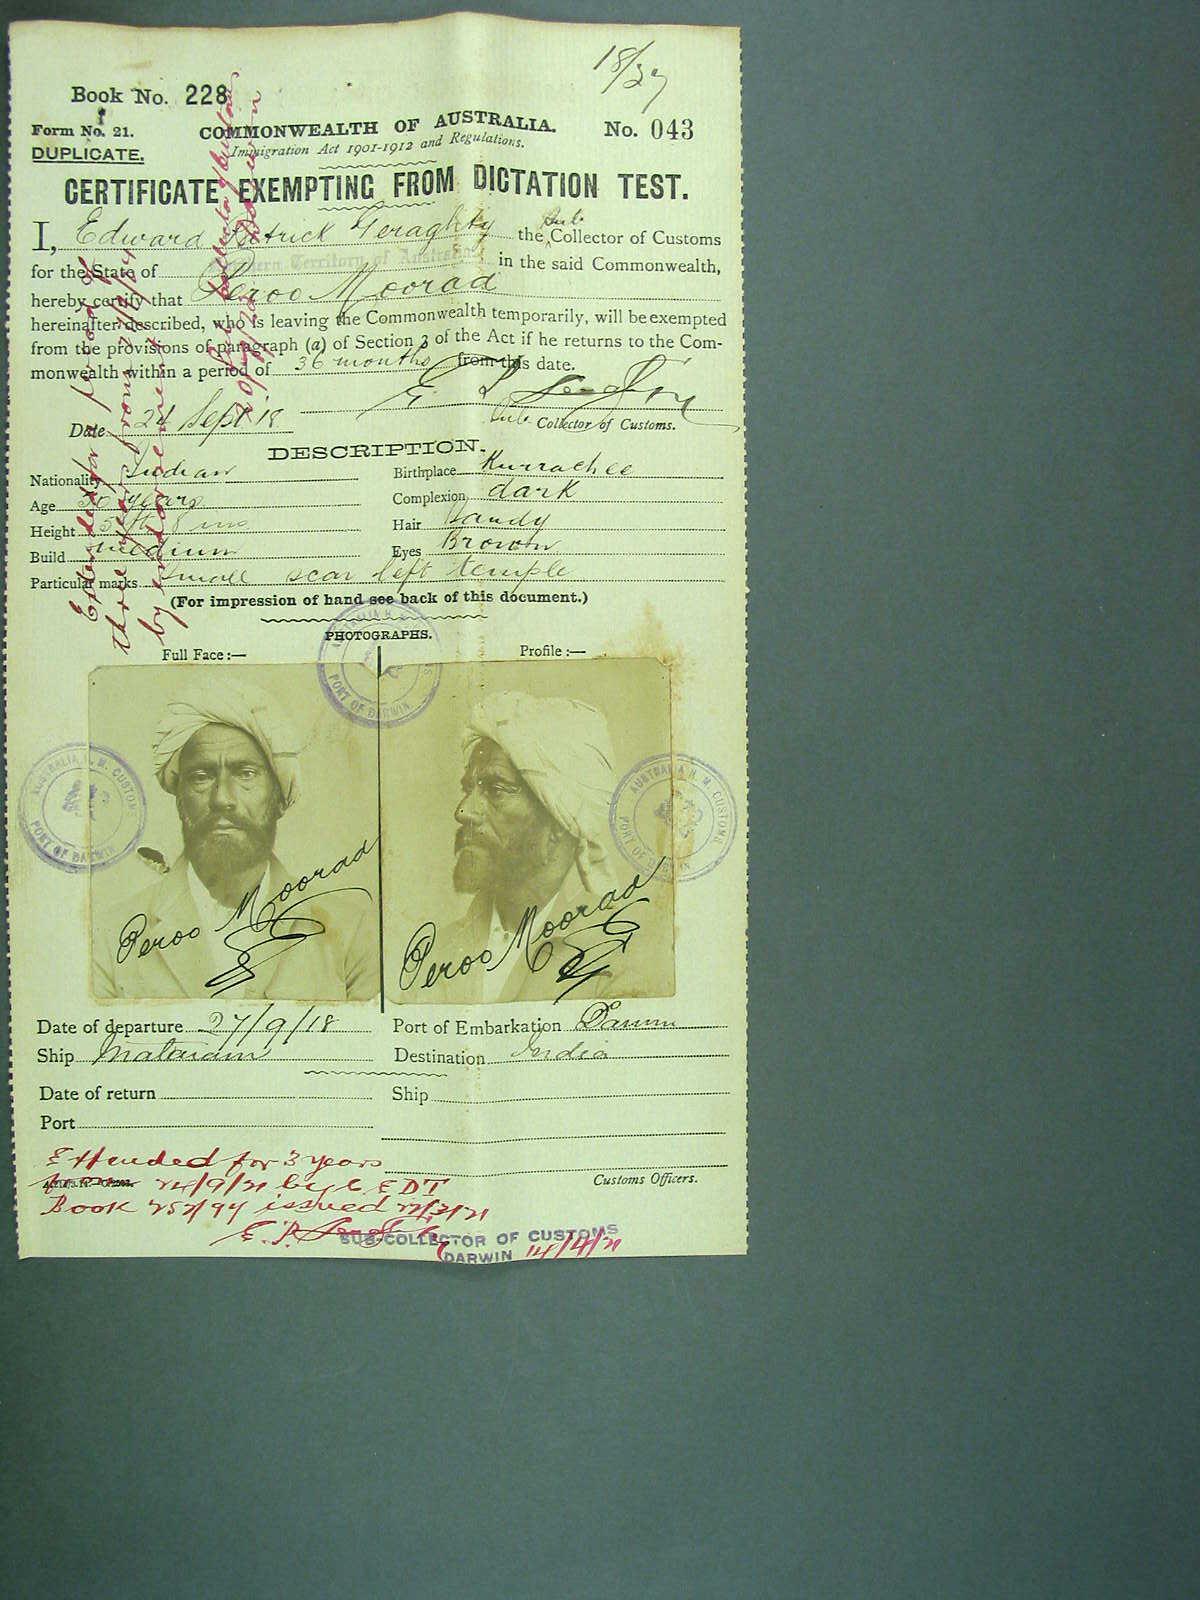 18/37
Book No. 228
Form No. 21.
DUPLICATE.
COMMONWEALTH OF AUSTRALIA.
Immigration Act 1901-1912 and Regulations.
No. 043
CERTIFICATE EXEMPTING FROM DICTATION TEST.
I, Edward Patrick Geraghty the Sub Collector of Customs
for the State of Northern Territory of Australia in the said Commonwealth,
hereby certify that Peroo Moorad
hereinafter described, who is leaving the Commonwealth temporarily, will be exempted
from the provisions of paragraph (a) of Section 3 of the Act if he returns to the Com-
monwealth within a period of 36 months from this date.
Date 24 Sept 18
Sub Collector of Customs.
DESCRIPTION.
Nationality Indian
Birthplace Kurrachee
Age 50 years
Complexion dark
Height 5 ft 8 ins
Hair Sandy
Build medium
Eyes Brown
Particular marks small scar left temple
(For impression of hand see back of this document.)
PHOTOGRAPHS.
Full Face :—
Profile :—
AUSTRALIA H. M. CUSTOMS
PORT OF DARWIN
AUSTRALIA H. M. CUSTOMS
PORT OF DARWIN
AUSTRALIA H. M. CUSTOMS
PORT OF DARWIN
Peroo Moorad
Peroo Moorad
Date of departure 27/9/18
Port of Embarkation Darwin
Ship Mataram
Destination India
Date of return
Ship
Port
Customs Officers.
Extended for 3 years
from 24/9/21 by C E D T
Book 257/94 issued
SUB-COLLECTOR OF CUSTOMS
DARWIN 14/4/21
Extended for period of
three years from
by endorsement
Collector of Customs
Darwin